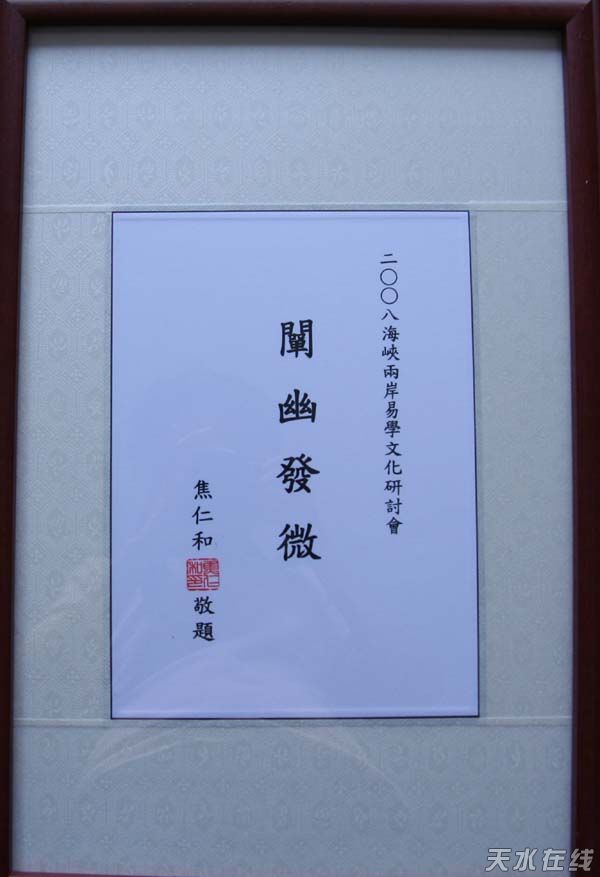 二〇〇八海峽兩岸易學文化研討會
闡幽發微
焦仁和敬題
天水在线